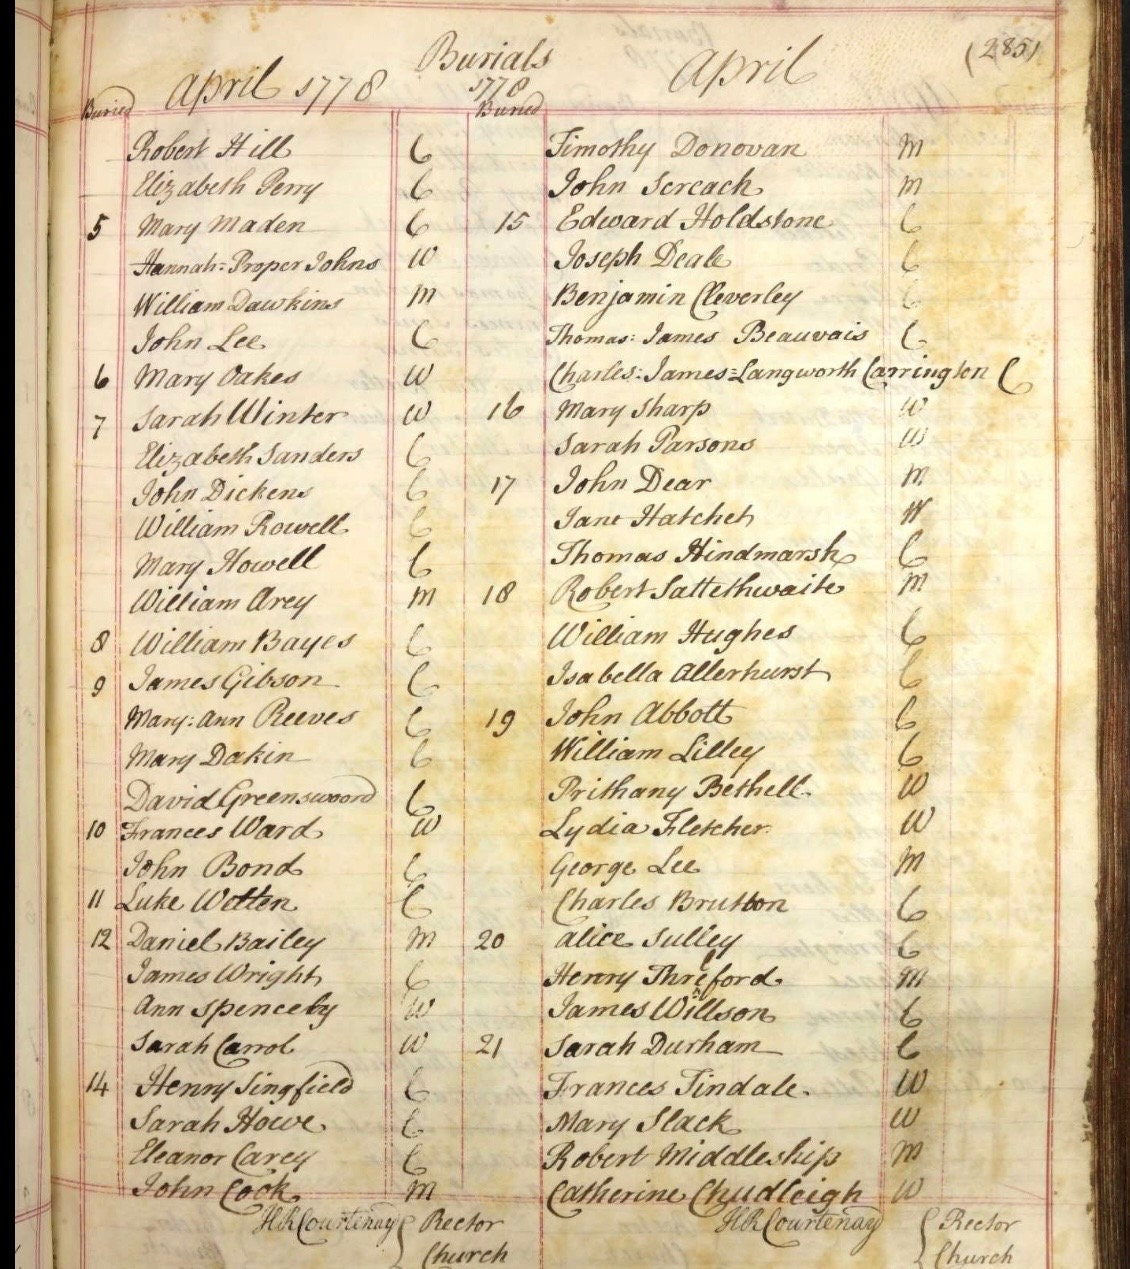 Burials
(285)
April 1778
1778
April
Buried
Buried
Robert Hill C
Elizabeth Perry C
5 Mary Maden C
Hannah=Proper Johns W
William Dawkins M
John Lee C
6 Mary Oakes W
7 Sarah Winter W
Elizabeth Sanders C
John Dickens C
William Rowell C
Mary Howell C
William Arey M
8 William Bayes C
9 James Gibson C
Mary: Ann Reeves C
Mary Dakin C
David Greenswoord C
10 Frances Ward W
John Bond C
11 Luke Wotten C
12 Daniel Bailey M
James Wright C
Ann Spenceby W
Sarah Carrol W
14 Henry Singfield C
Sarah Howe C
Eleanor Carey C
John Cook M
HRCourtenay { Rector
Church
Timothy Donovan M
John Screack M
15 Edward Holdstone C
Joseph Deale C
Benjamin Cleverley C
Thomas: James Beauvais C
Charles: James=Langworth Carrington C
16 Mary Sharp W
Sarah Parsons W
17 John Dear M
Jane Hatchet W
Thomas Hindmarsh C
18 Robert Sattethwaite M
William Hughes C
Isabella Allerhurst C
19 John Abbott C
William Lilley C
Prithany Bethell W
Lydia Fletcher W
George Lee M
Charles Brutton C
20 Alice Sulley C
Henry Threford M
James Willson C
21 Sarah Durham C
Frances Tindale W
Mary Slack W
Robert Middleship M
Catherine Chudleigh W
HRCourtenay { Rector
Church